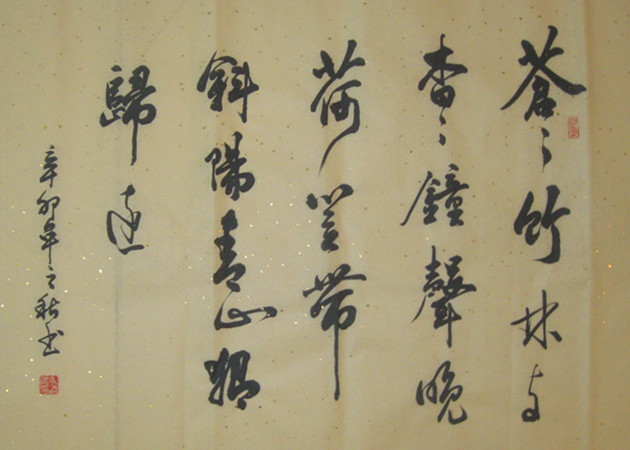 蒼〻竹林寺
杳〻鐘聲晚
荷笠帶
斜陽青山獨
歸遠
辛卯年之秋書